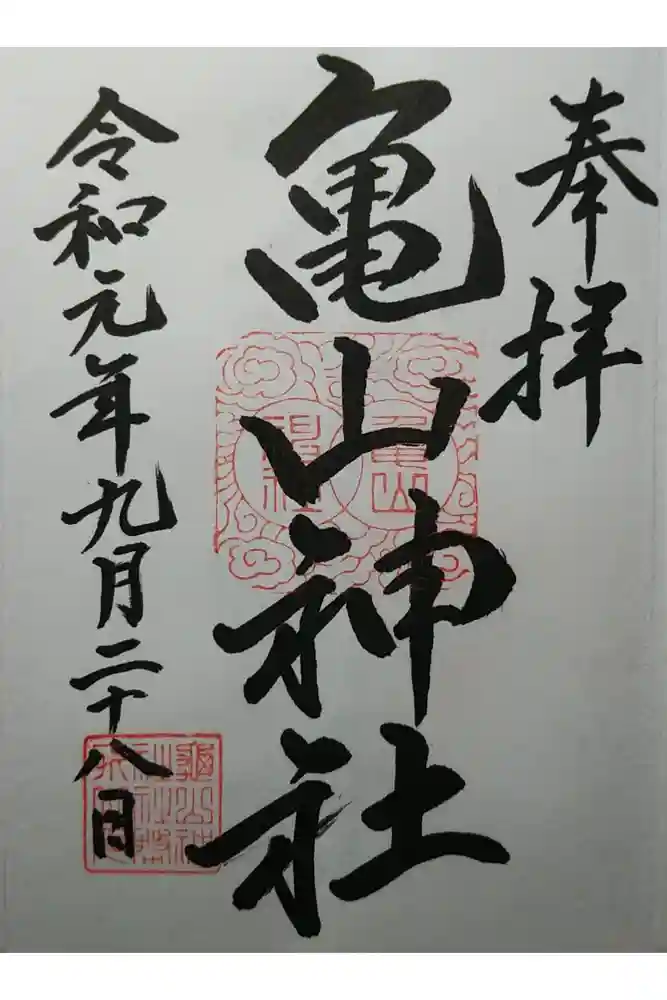 奉拝
亀山神社
令和元年九月二十八日